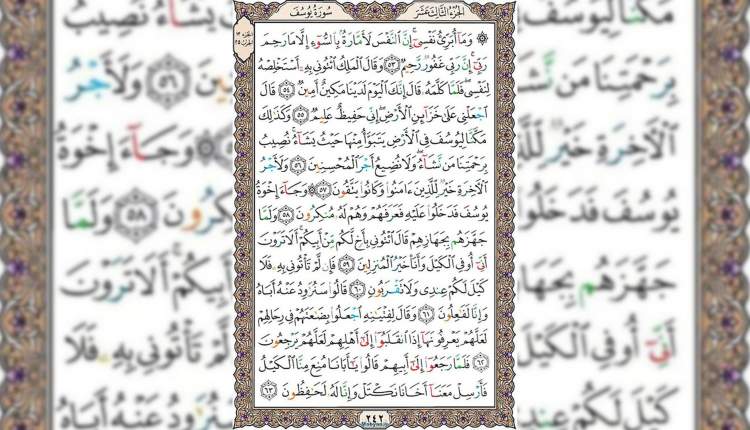 سُورَةُ يُوسُفَ
الجُزْءُ الثَّالِثَ عَشَرَ
۞ وَمَآ أُبَرِّئُ نَفْسِىٓۚ إِنَّ ٱلنَّفْسَ لَأَمَّارَةُۢ بِٱلسُّوٓءِ إِلَّا مَا رَحِمَ
رَبِّىٓۚ إِنَّ رَبِّى غَفُورٌ رَّحِيمٌ ۝٥٣ وَقَالَ ٱلْمَلِكُ ٱئْتُونِى بِهِۦٓ أَسْتَخْلِصْهُ
لِنَفْسِىۖ فَلَمَّا كَلَّمَهُۥ قَالَ إِنَّكَ ٱلْيَوْمَ لَدَيْنَا مَكِينٌ أَمِينٌ ۝٥٤ قَالَ
ٱجْعَلْنِى عَلَىٰ خَزَآئِنِ ٱلْأَرْضِۖ إِنِّى حَفِيظٌ عَلِيمٌ ۝٥٥ وَكَذَٰلِكَ
مَكَّنَّا لِيُوسُفَ فِى ٱلْأَرْضِ يَتَبَوَّأُ مِنْهَا حَيْثُ يَشَآءُۚ نُصِيبُ
بِرَحْمَتِنَا مَن نَّشَآءُۖ وَلَا نُضِيعُ أَجْرَ ٱلْمُحْسِنِينَ ۝٥٦ وَلَأَجْرُ
ٱلْءَاخِرَةِ خَيْرٌ لِّلَّذِينَ ءَامَنُوا۟ وَكَانُوا۟ يَتَّقُونَ ۝٥٧ ۞ وَجَآءَ إِخْوَةُ
يُوسُفَ فَدَخَلُوا۟ عَلَيْهِ فَعَرَفَهُمْ وَهُمْ لَهُۥ مُنكِرُونَ ۝٥٨ وَلَمَّا
جَهَّزَهُم بِجَهَازِهِمْ قَالَ ٱئْتُونِى بِأَخٍ لَّكُم مِّنْ أَبِيكُمْۚ أَلَا تَرَوْنَ
أَنِّىٓ أُوفِى ٱلْكَيْلَ وَأَنَا۠ خَيْرُ ٱلْمُنزِلِينَ ۝٥٩ فَإِن لَّمْ تَأْتُونِى بِهِۦ فَلَا
كَيْلَ لَكُمْ عِندِى وَلَا تَقْرَبُونِ ۝٦٠ قَالُوا۟ سَنُرَٰوِدُ عَنْهُ أَبَاهُ
وَإِنَّا لَفَٰعِلُونَ ۝٦١ وَقَالَ لِفِتْيَٰنِهِ ٱجْعَلُوا۟ بِضَٰعَتَهُمْ فِى رِحَالِهِمْ
لَعَلَّهُمْ يَعْرِفُونَهَآ إِذَا ٱنقَلَبُوٓا۟ إِلَىٰٓ أَهْلِهِمْ لَعَلَّهُمْ يَرْجِعُونَ
۝٦٢ فَلَمَّا رَجَعُوٓا۟ إِلَىٰٓ أَبِيهِمْ قَالُوا۟ يَٰٓأَبَانَا مُنِعَ مِنَّا ٱلْكَيْلُ
فَأَرْسِلْ مَعَنَآ أَخَانَا نَكْتَلْ وَإِنَّا لَهُۥ لَحَٰفِظُونَ ۝٦٣
٢٤٢